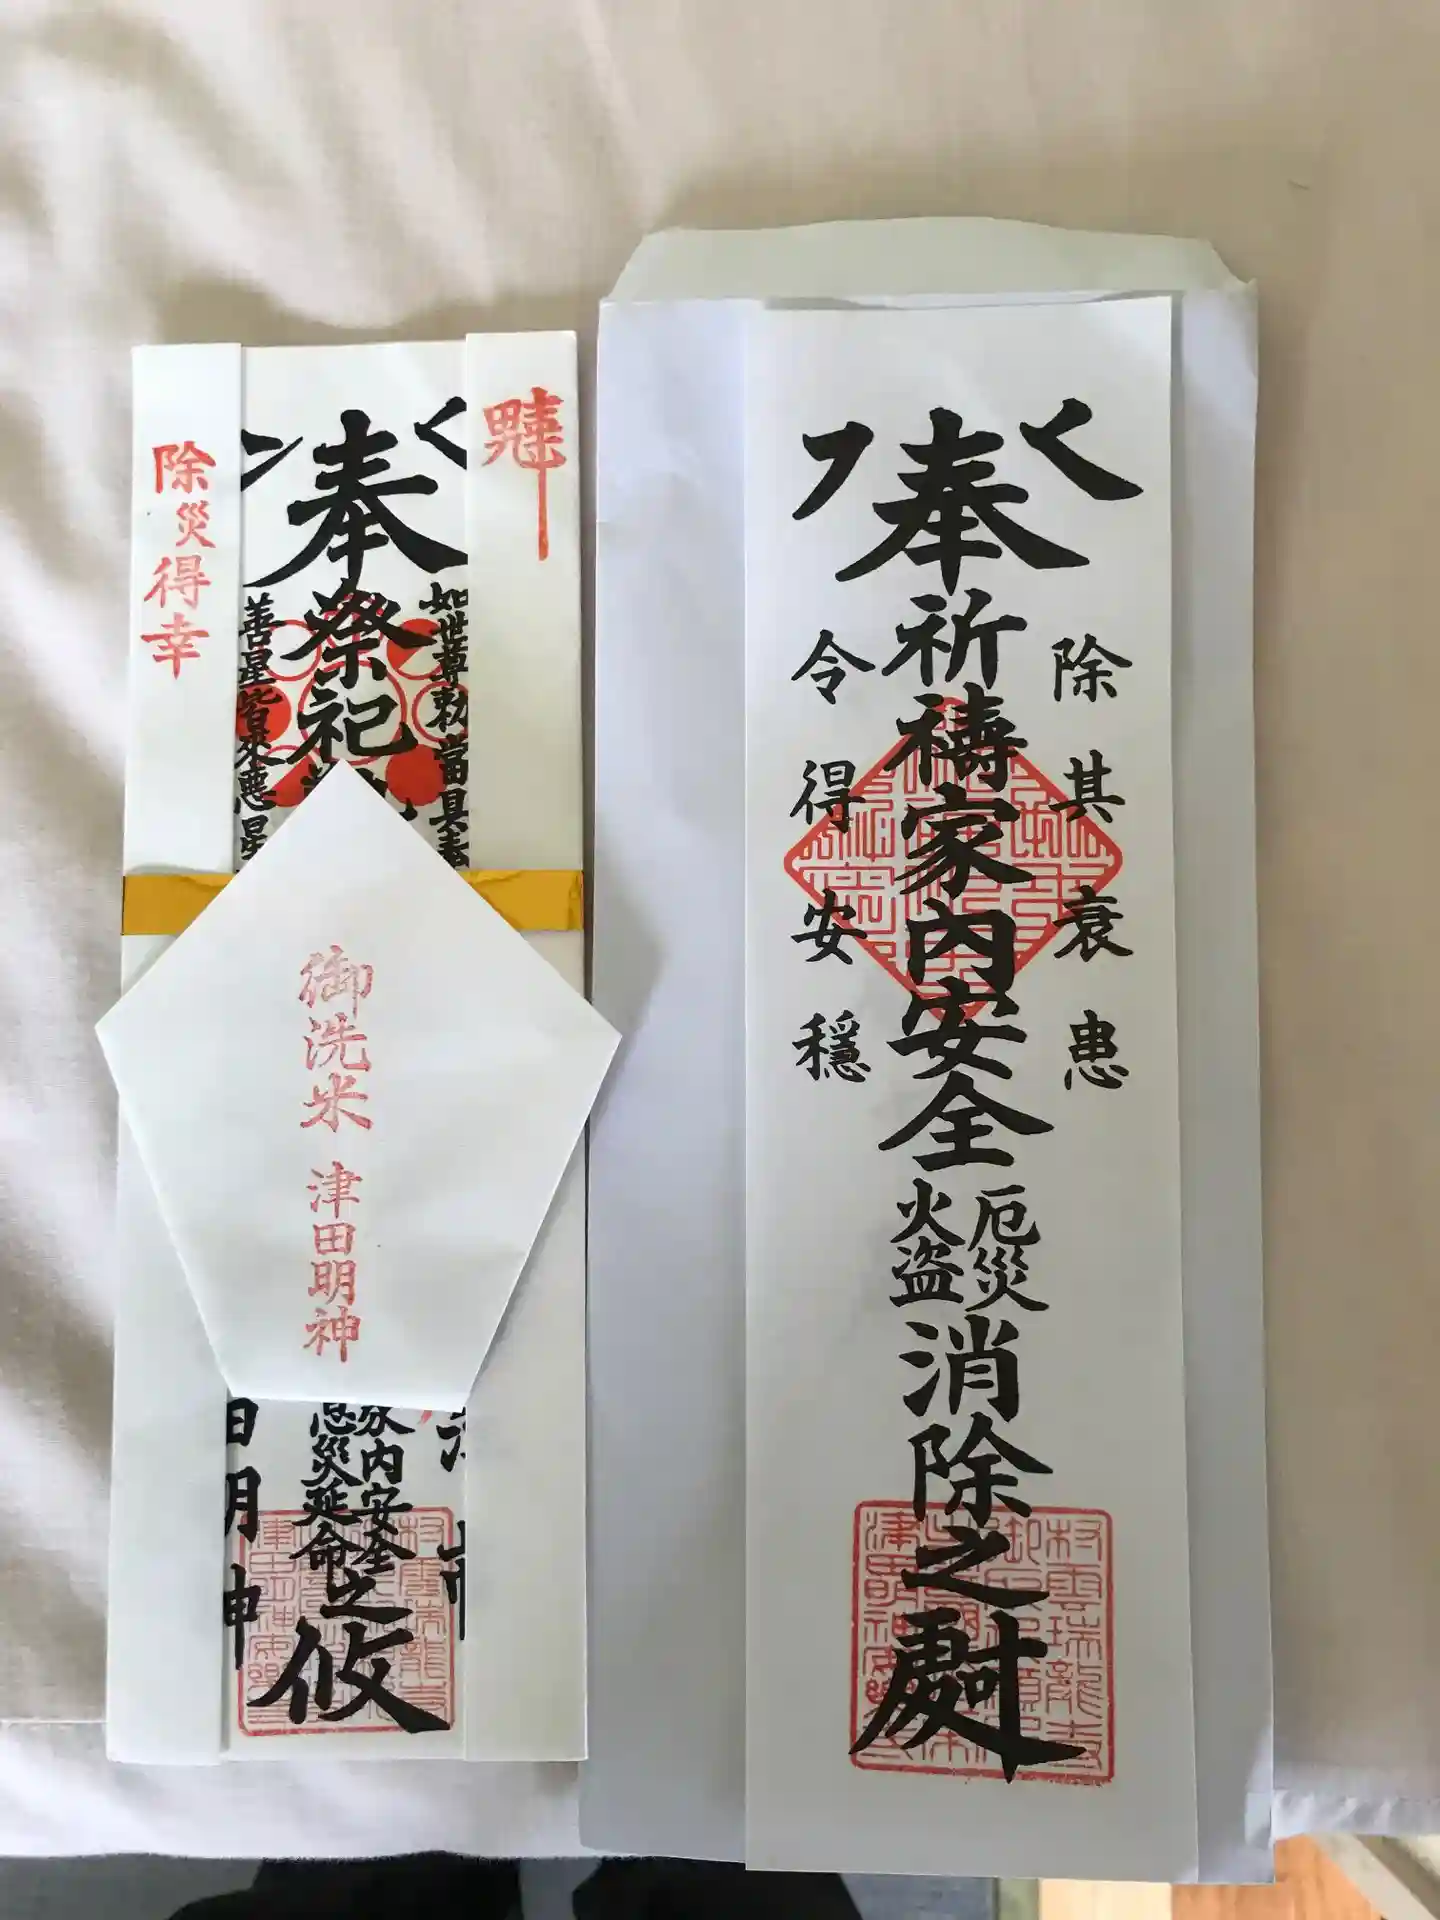 除災得幸
奉祭祀
如世尊勅當具奉
善星皆来悪星
御洗米 津田明神
家内安全
息災延命
之攸
日月神
奉祈禱家內安全
厄災
火盗
消除之
除其衰患
令得安穏